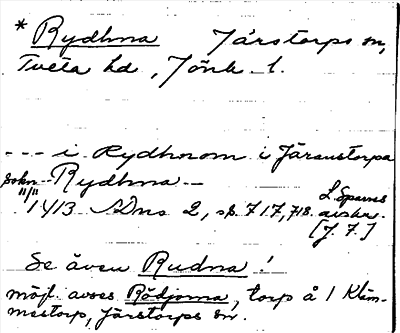 * Rydhna Järstorps sn,
Tveta hd, Jönk. l.
--- i Rydhnom i Järnustorpa
sokn -- Rydhna --
"/" 1413 Dns 2, sp. 717, 718. L Sparres avskr. [J. 7.]
Se även Rudna !
möjl. avses Rödjorna, torp å 1 Kläm-
mestorp, Järstorps sn.